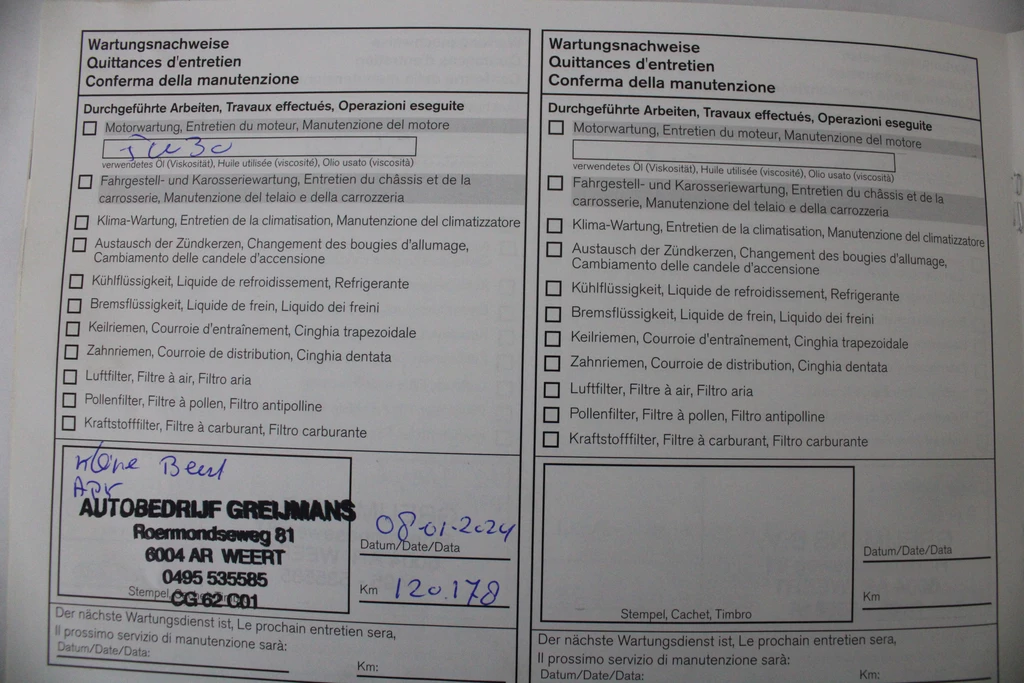 Wartungsnachweise
Quittances d'entretien
Conferma della manutenzione
Durchgeführte Arbeiten, Travaux effectués, Operazioni eseguite
Motorwartung, Entretien du moteur, Manutenzione del motore
5w30
verwendetes Öl (Viskosität), Huile utilisée (viscosité), Olio usato (viscosità)
Fahrgestell- und Karosseriewartung, Entretien du châssis et de la
carrosserie, Manutenzione del telaio e della carrozzeria
Klima-Wartung, Entretien de la climatisation, Manutenzione del climatizzatore
Austausch der Zündkerzen, Changement des bougies d'allumage,
Cambiamento delle candele d'accensione
Kühlflüssigkeit, Liquide de refroidissement, Refrigerante
Bremsflüssigkeit, Liquide de frein, Liquido dei freini
Keilriemen, Courroie d'entraînement, Cinghia trapezoidale
Zahnriemen, Courroie de distribution, Cinghia dentata
Luftfilter, Filtre à air, Filtro aria
Pollenfilter, Filtre à pollen, Filtro antipolline
Kraftstofffilter, Filtre à carburant, Filtro carburante
Kleine Beurt
APK
AUTOBEDRIJF GREIJMANS
Roermondseweg 81
6004 AR WEERT
0495 535585
CG 62 C01
Stempel, Cachet, Timbro
08-01-2024
Datum/Date/Data
Km 120.178
Der nächste Wartungsdienst ist, Le prochain entretien sera,
Il prossimo servizio di manutenzione sarà:
Datum/Date/Data:
Km:
Wartungsnachweise
Quittances d'entretien
Conferma della manutenzione
Durchgeführte Arbeiten, Travaux effectués, Operazioni eseguite
Motorwartung, Entretien du moteur, Manutenzione del motore
verwendetes Öl (Viskosität), Huile utilisée (viscosité), Olio usato (viscosità)
Fahrgestell- und Karosseriewartung, Entretien du châssis et de la
carrosserie, Manutenzione del telaio e della carrozzeria
Klima-Wartung, Entretien de la climatisation, Manutenzione del climatizzatore
Austausch der Zündkerzen, Changement des bougies d'allumage,
Cambiamento delle candele d'accensione
Kühlflüssigkeit, Liquide de refroidissement, Refrigerante
Bremsflüssigkeit, Liquide de frein, Liquido dei freini
Keilriemen, Courroie d'entraînement, Cinghia trapezoidale
Zahnriemen, Courroie de distribution, Cinghia dentata
Luftfilter, Filtre à air, Filtro aria
Pollenfilter, Filtre à pollen, Filtro antipolline
Kraftstofffilter, Filtre à carburant, Filtro carburante
Stempel, Cachet, Timbro
Datum/Date/Data
Km
Der nächste Wartungsdienst ist, Le prochain entretien sera,
Il prossimo servizio di manutenzione sarà:
Datum/Date/Data:
Km: